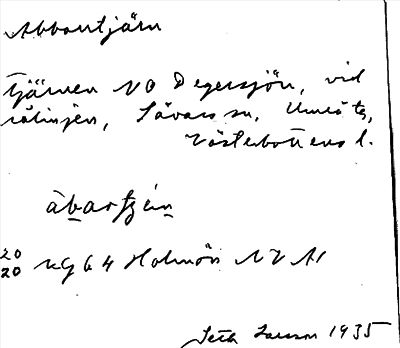 Abbortjärn
Tjärnen NO Degersjön, vid
rålinjen, Sävars sn, Umeå ta,
Västerbottens l.
ab̲ar
20
20 KG 64 Holmön NV A1
Seth Larsson 1935